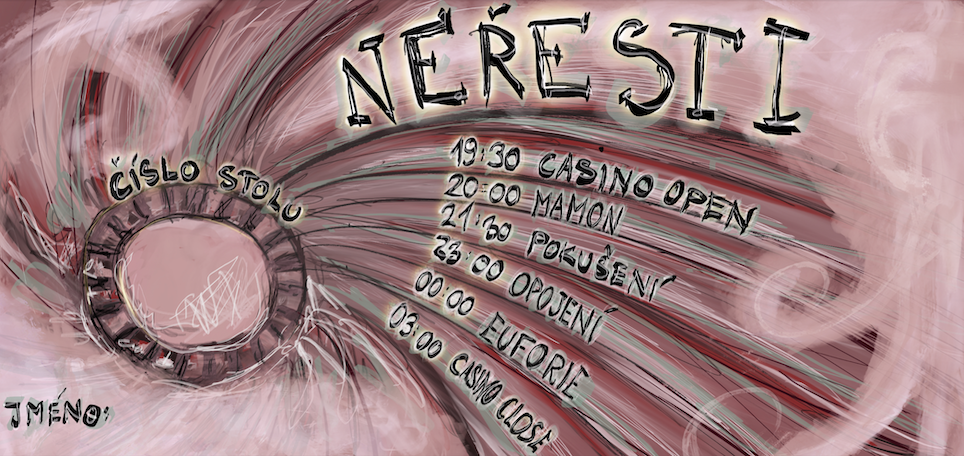 NEŘESTI
19:30 CASINO OPEN
20:00 MAMON
21:30 POKUŠENÍ
23:00 OPOJENÍ
00:00 EUFORIE
03:00 CASINO CLOSE
ČÍSLO STOLU
JMÉNO: